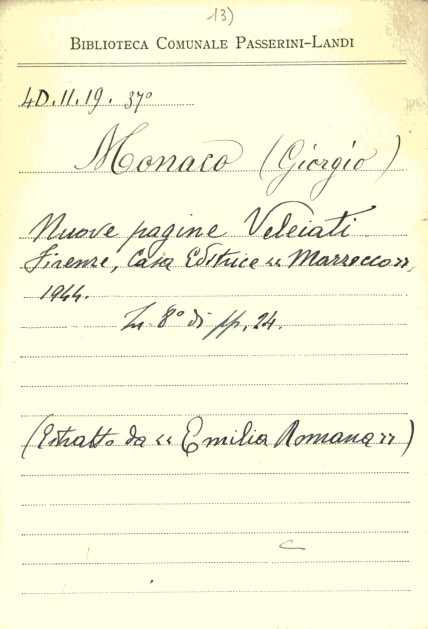 13)
BIBLIOTECA COMUNALE PASSERINI-LANDI
4D.II.19. 37º
Monaco (Giorgio)
Nuove pagine Veleiati
Firenze, Casa Editrice « Marzocco »,
1944.
In 8º di pp. 24.
(Estratto da « Emilia Romana »)